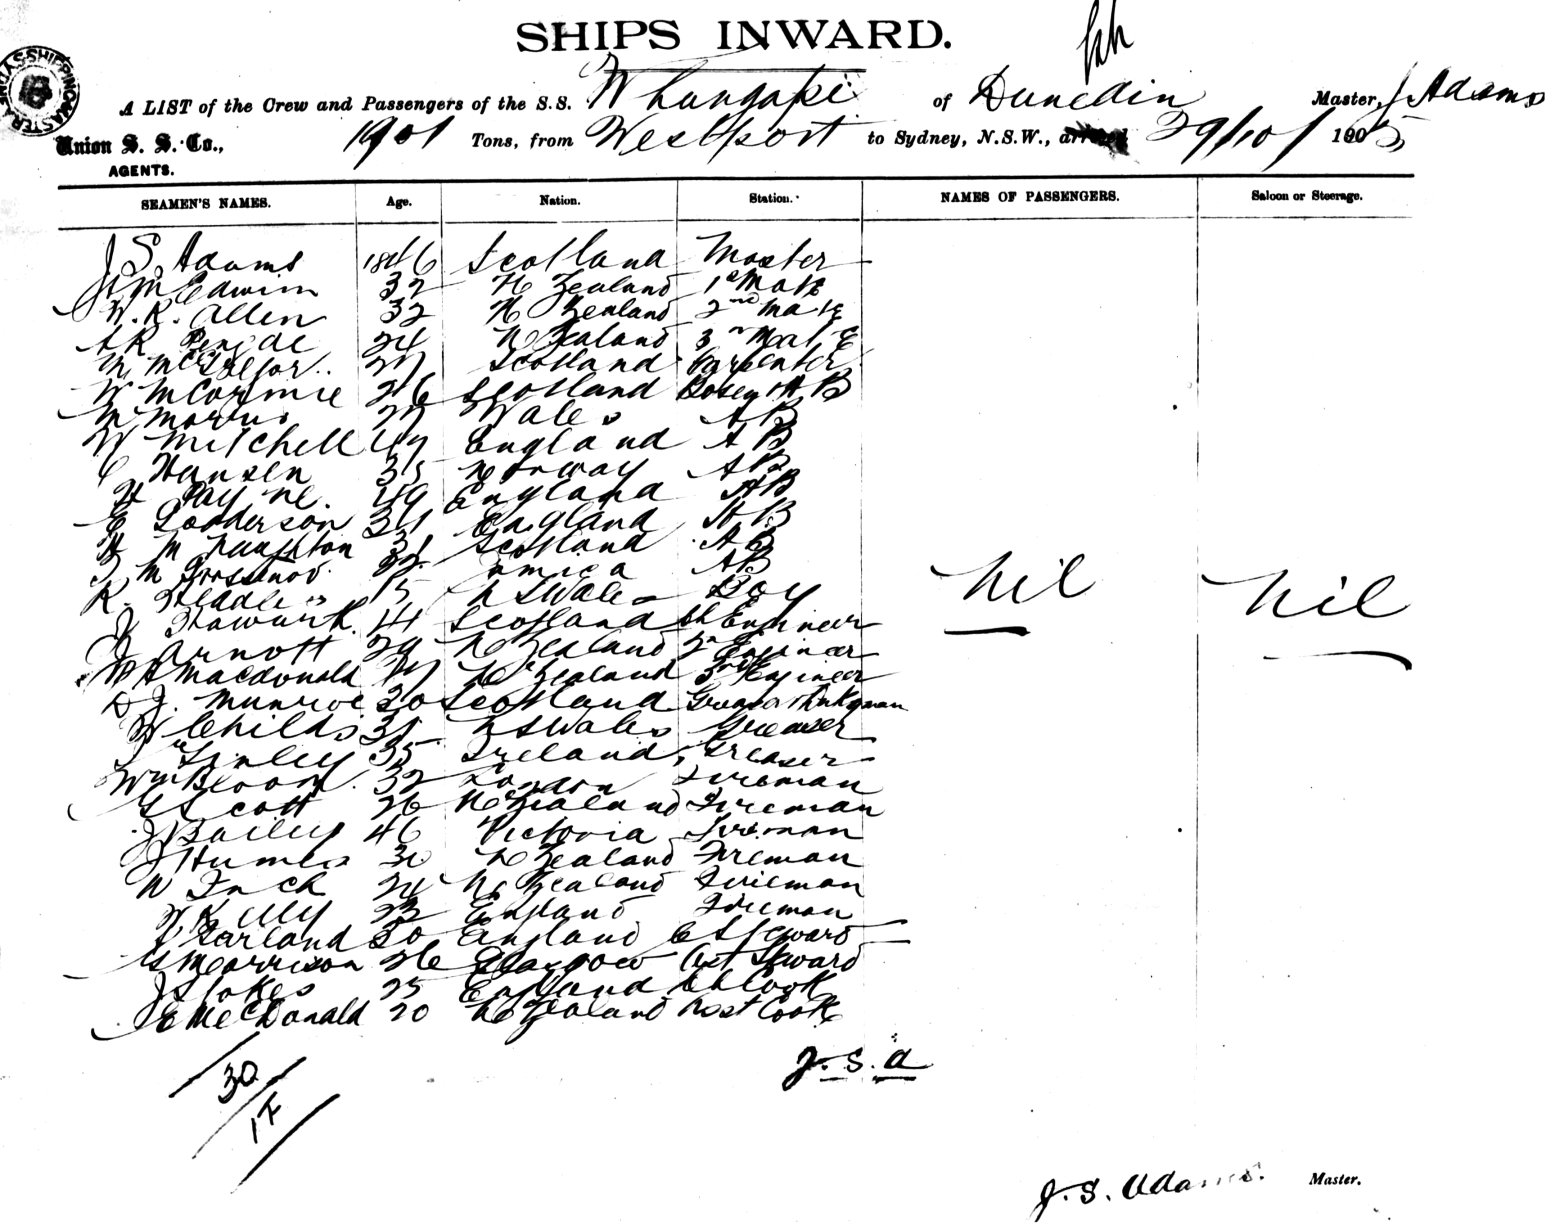 SHIPS INWARD.
A LIST of the Crew and Passengers of the S.S. Whangape of Dunedin Master, J Adams
Union S. S. Co., 1901 Tons, from Westport to Sydney, N.S.W., arrived 29/10/1905
AGENTS.
SEAMEN'S NAMES. Age. Nation. Station. NAMES OF PASSENGERS. Saloon or Steerage.
J S. Adams 1846 Scotland Master
Edwin 32 N Zealand 1st Mate
W. R. Allen 32 N Zealand 2nd Mate
A R 24 N Zealand 3rd Mate
M McGregor 27 Scotland Carpenter
W McCormie 26 Scotland Bosun & A B
M Morris 27 Wales A B
W Mitchell 47 England A B
C Hansen 35 Norway A B
H Payne. 49 England A B
E Sanderson 34 England A B
H M Naughton 31 Scotland A B
22 A B
R. 15 N S Wales Boy
J Howard 44 Scotland Ch Engineer
J Arnott 29 N Zealand 2nd Engineer
W A Macdonald 27 N Zealand 3rd Engineer
D J. Munroe 30 Scotland
W Childs 31 N S Wales Greaser
Finley 35 Ireland, Greaser
Wm Bloom 32 London Fireman
G Scott 26 N Zealand Fireman
J Bailey 46 Victoria Fireman
J Humes 30 N Zealand Fireman
W Inch 24 N Zealand Fireman
Kelly 23 England Fireman
J Garland 30 England C Steward
G Morrison 26 Glasgow Ast Steward
J Stokes 25 England Ch Cook
E McDonald 20 N Zealand Asst Cook
Nil Nil
J. S. A
30
17
J. S. Adams. Master.